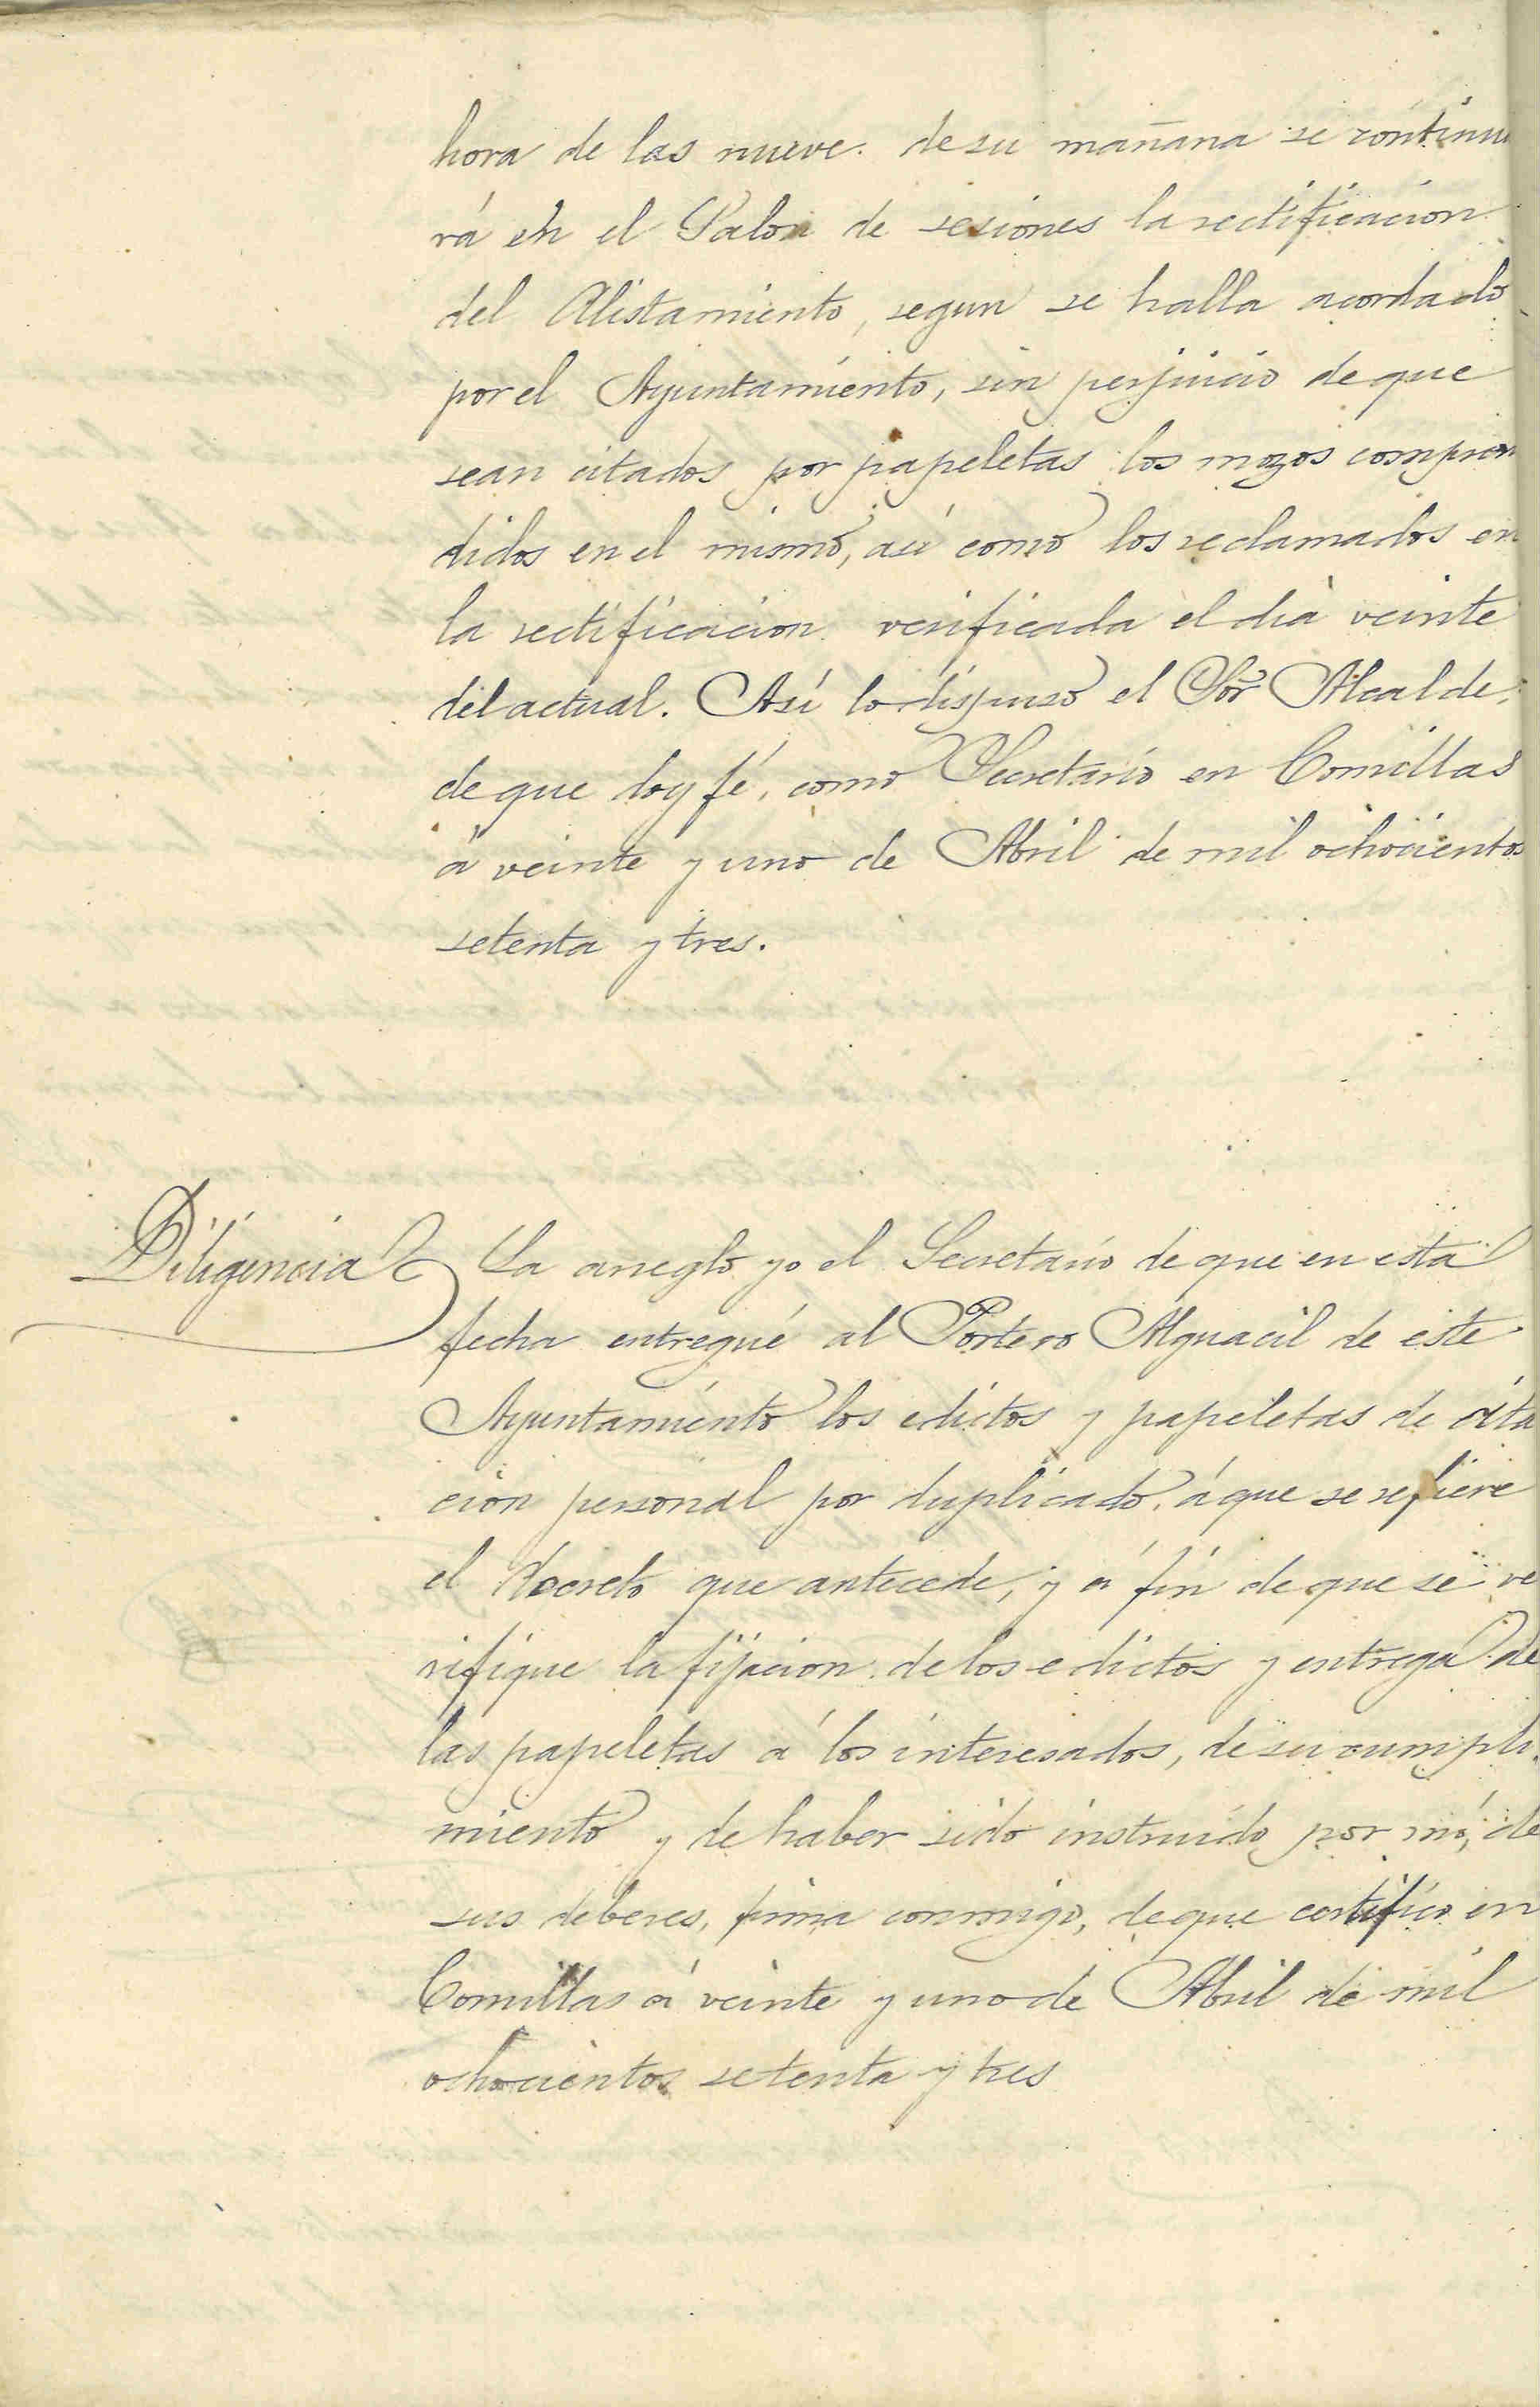 hora de las nueve. de su mañana se continu
rá en el Salon de sesiones la rectificacion
del Alistamiento, segun se halla acordado
por el Ayuntamiento, sin perjuicio de que
sean citados por papeletas los mozos compren
didos en el mismo, así como los reclamados en
la rectificacion verificada el dia veinte
del actual. Así lo dispuso el Sor Alcalde,
de que doy fé, como Secretario en Comillas
á veinte y uno de Abril de mil ochocientos
setenta y tres.
Diligencia La arreglo yo el Secretario de que en esta
fecha entregué al Portero Alguacil de este
Ayuntamiento los edictos y papeletas de cita
cion personal por duplicado, á que se refiere
el Decreto que antecede, y á fin de que se ve
rifique la fijacion de los edictos y entrega de
las papeletas á los interesados, de su cumpli
miento y de haber sido instruido por mí, de
sus deberes, firma conmigo, de que certifico en
Comillas á veinte y uno de Abril de mil
ochocientos setenta y tres